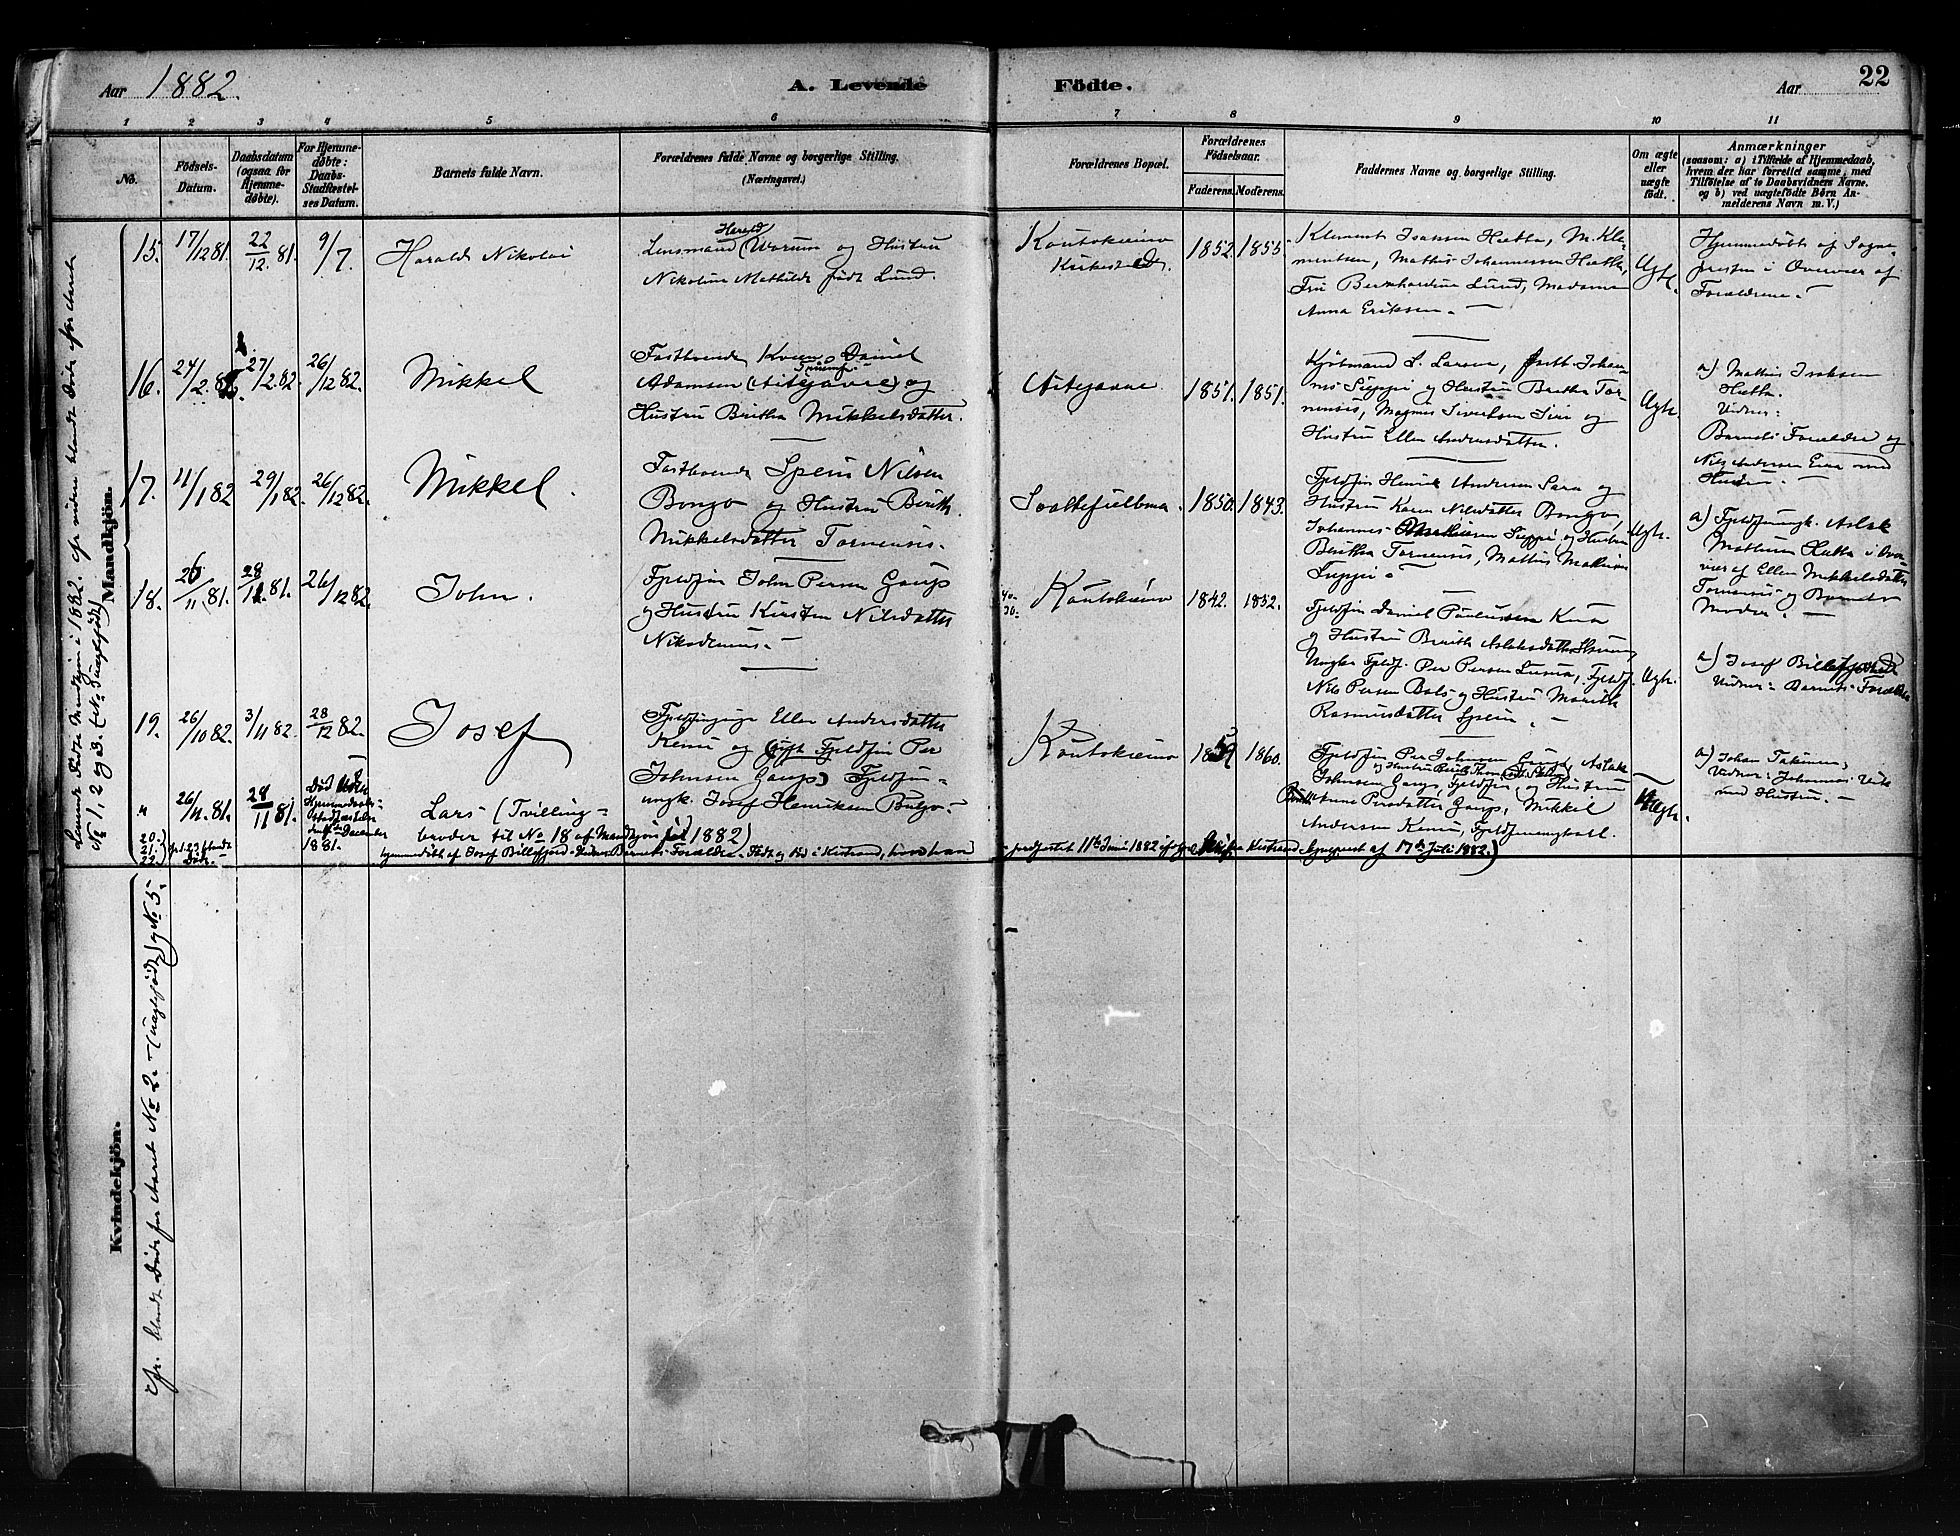 Aar 1882.
A. Levende Födte.
Aar 22
1 2 3 4 5 6 7 8 9 10 11
No.
Födsels-Datum.
Daabsdatum (ogsaa for Hjemmedøbte).
For Hjemmedøbte: Daabs-Stadfæstelses Datum.
Barnets fulde Navn.
Forældrenes fulde Navne og borgerlige Stilling.
(Næringsvei.)
Forældrenes Bopæl.
Forældrenes Födselsaar.
Faderens. Moderens.
Faddernes Navne og borgerlige Stilling.
Om ægte eller uægte født.
Anmærkninger
(saasom: a) i Tilfælde af Hjemmedaab,
hvem der har forrettet samme, med
Tilföielse af to Daabsvidners Navne.
og b) ved uægtefödte Börn Anmelderens Navn m. V.)
Mandkjön.
15. 17/12 81. 22/12. 81. 9/7. Harald Nikolai
Lensmand Harald Worum og Hustru
Nikoline Mathilde født Lund.
Koutokeino
Kirkested.
1852. 1855.
Klemmet Isaksen Hætta, M. Kle-
mentsen, Mathis Johannessen Hætta,
Fru Bernhardine Lund, Madame
Anna Eriksen.
Ægte.
Hjemmedöbt af Sogne-
presten i Overvær af
Forældrene.
16. 24/2. 82. 27/2. 82. 26/12 82. Mikkel
Fastboende Kvæn Daniel
Adamsen (Aitejavre) og
Hustru Britha Mikkelsdatter.
Aitejavre
1851. 1851.
Kjöbmand L. Larsen,
og Hustru Britha Tor-
nensis, Magnus Sivertsen Siri og
Hustru Ellen Andersdatter.
Ægte.
a) Mathis Isaksen
Hætta.
Vidner:
Barnets Forældre og
Nils Andersen Eira med
Hustru.
17. 11/1 82 29/1 82. 26/12 82. Mikkel.
Fastboende Spein Nilsen
Bongo og Hustru Berith
Mikkelsdatter Tornensis.
1850. 1843.
Fjeldfin Henrik Andersen Sara og
Hustru Karen Nilsdatter Bongo,
Johannes Mathisen og Hustru
Beritha Tornensis, Mathis Mathisen
Ægte.
a) Fjeldfinungk. Aslak
Mathisen Hætta i Over-
vær af Ellen Mikkelsdatter
Tornensis og Barnets
Moder.
18. 26/11 81. 28/11. 81. 26/12 82. John.
Fjeldfin John Persen Gaup
og Hustru Kirsten Nilsdatter
Nikodemus.
40-
30. Koutokeino
1842. 1852.
Fjeldfin Daniel Paulussen
og Hustru Berith Aslaksdatter
Ungkr. Fjeldf. Per Persen Fjeldf.
Nils Persen Bals og Hustru Marith
Rasmusdatter Spein.
Ægte.
a) Josef Billefjord
Vidner: Barnets Forældre
19. 26/10 82. 3/11 82. 28/12 82. Josef
Fjeldfinpige Ellen Andersdatter
Kemi og (gift Fjeldfin Per
Johnsen Gaup) Fjeldfin-
ungk. Josef Henriksen Buljo.
Koutokeino
1859 1860.
Fjeldfin Per Johnsen Gaup, Aslak
Johnsen Gaup, Fjeldfin, og Hustru
Anne Persdatter Gaup, Mikkel
Andersen Kemi, Fjeldfinungkarl.
Uægte.
a) Johan
Vidner: Johannes
med Hustru.
" 26/11. 81. 28/11 81. Död uden
Hjemmedaabs-
stadfæstelse
December
1881.
Lars (Tvilling-
broder til No 18 af Mandkjön for 1882)
hjemmedöbt af Josef Billefjord. Vidner Barnets Forældre. Födt og död i Kistrand, hvor han
er jordfæstet 11te Juni 1882 ifölge fra Kistrand Sogneprest af 17de Juli 1882.)
20.
21.
22.
Kvindekjön.
Cfr. blandt Döde for Aaret No 2. (uægtefödt) og No 5.
No 1, 2 og 3. (No 3 uægtefödt)